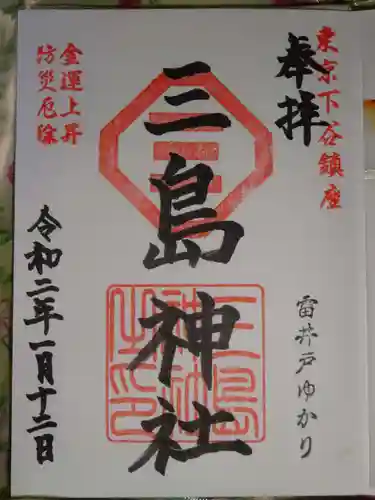 東京下谷鎮座
奉拝
雷井戸ゆかり
三島神社
金運上昇
防災厄除
令和二年一月十二日
三島
神社
之印